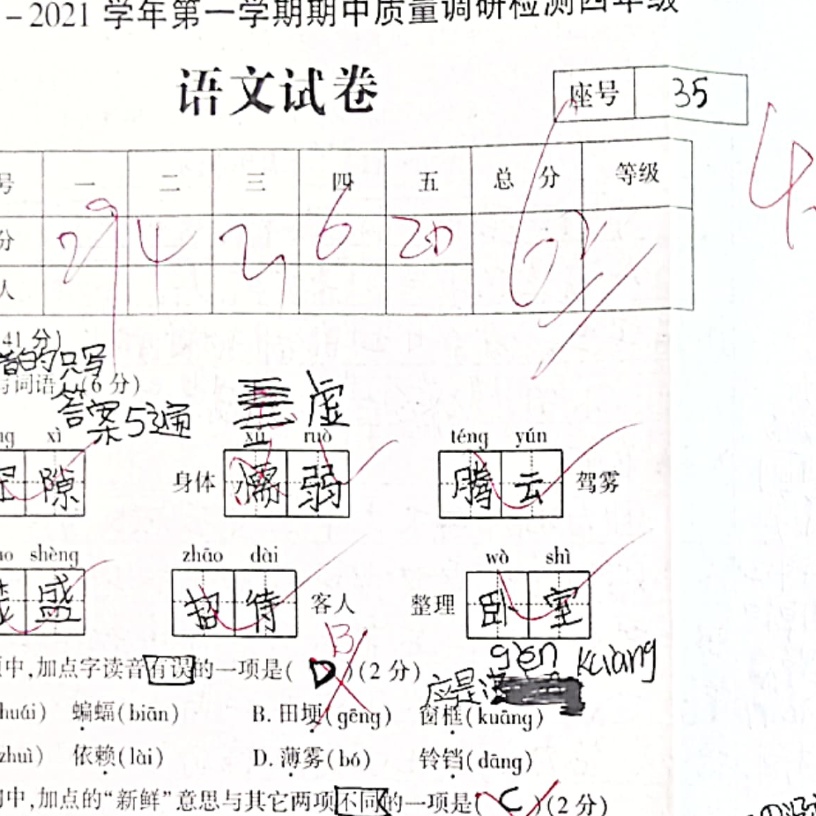 -2021 学年第一学期期中质量调研检测四年级
语文试卷
座号 35
号 一 二 三 四 五 总 分 等级
分 29 4 6 20
人
41 分)
的只写
与词语。(6 分)
答案 虚
xì xū ruò téng yún
隙 身体 弱 腾云 驾雾
shèng zhāo dài wò shì
盛 招待 客人 整理 卧室
中,加点字读音有误的一项是( D )(2 分) B
应是 gěn kuàng
huái) 蝙蝠(biān) B. 田埂(gēng) 窗框(kuāng)
zhuì) 依赖(lài) D. 薄雾(bó) 铃铛(dāng)
中,加点的“新鲜”意思与其它两项不同的一项是( C )(2 分)